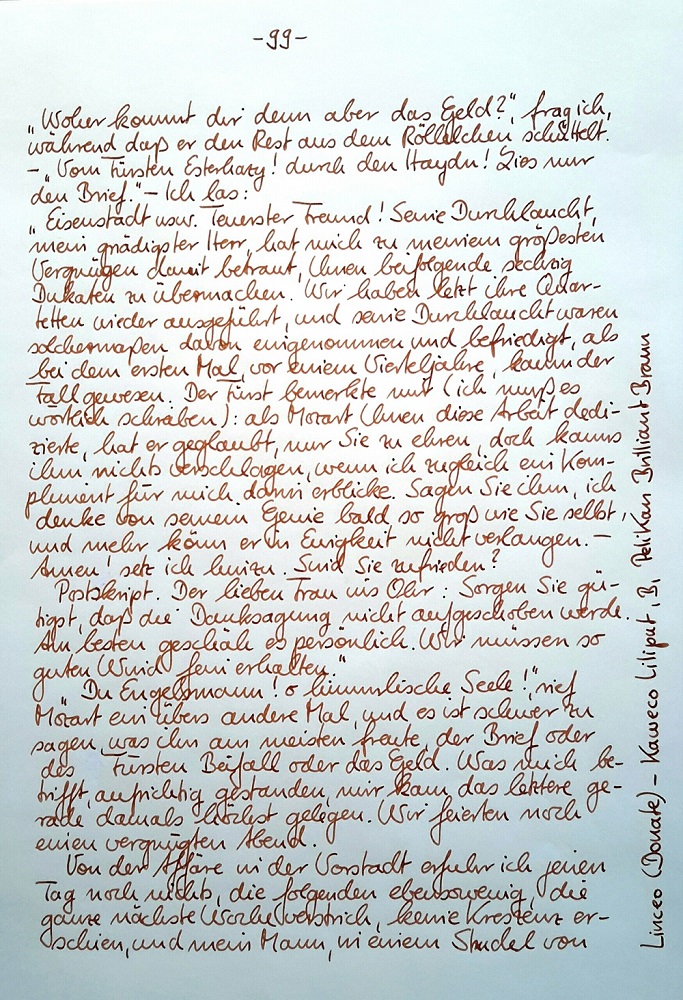 -99-
„Woher kommt dir denn aber das Geld?", frag ich,
während daß er den Rest aus dem Röllelchen schüttelt.
– „Vom Fürsten Esterhazy! durch den Haydn! Lies nur
den Brief." – Ich las:
„Eisenstadt usw. Teuerster Freund! Seine Durchlaucht,
mein gnädigster Herr, hat mich zu meinem größesten
Vergnügen damit betraut, Ihnen beifolgende sechzig
Dukaten zu übermachen. Wir haben letzt ihre Quar-
tetten wieder ausgeführt, und seine Durchlaucht waren
solchermaßen davon eingenommen und befriedigt, als
bei dem ersten Mal, vor einem Vierteljahre, kaum der
Fall gewesen. Der Fürst bemerkte mir (ich muß es
wörtlich schreiben): als Mozart Ihnen diese Arbeit dedi-
zierte, hat er geglaubt, nur Sie zu ehren, doch kanns
ihm nichts verschlagen, wenn ich zugleich ein Kom-
pliment für mich darin erblicke. Sagen Sie ihm, ich
denke von seinem Genie bald so groß wie Sie selbst,
und mehr könn er in Ewigkeit nicht verlangen. –
Amen! setz ich hinzu. Sind Sie zufrieden?
Postskript. Der lieben Frau ins Ohr: Sorgen Sie gü-
tigst, daß die Danksagung nicht aufgeschoben werde.
Am besten geschäh es persönlich. Wir müssen so
guten Wind fein erhalten."
„Du Engelsmann! o himmlische Seele!", rief
Mozart ein übers andere Mal, und es ist schwer zu
sagen, was ihn am meisten freute, der Brief oder
des Fürsten Beifall oder das Geld. Was mich be-
trifft, aufrichtig gestanden, mir kam das letztere ge-
rade damals höchst gelegen. Wir feierten noch
einen vergnügten Abend.
Von der Affäre in der Vorstadt erfuhr ich jenen
Tag noch nichts, die folgenden ebensowenig, die
ganze nächste Woche verstrich, keine Kreszenz er-
schien, und mein Mann, in einem Strudel von
Linceo (Donate) – Kaweco Liliput, B, Pelikan Brilliant Braun